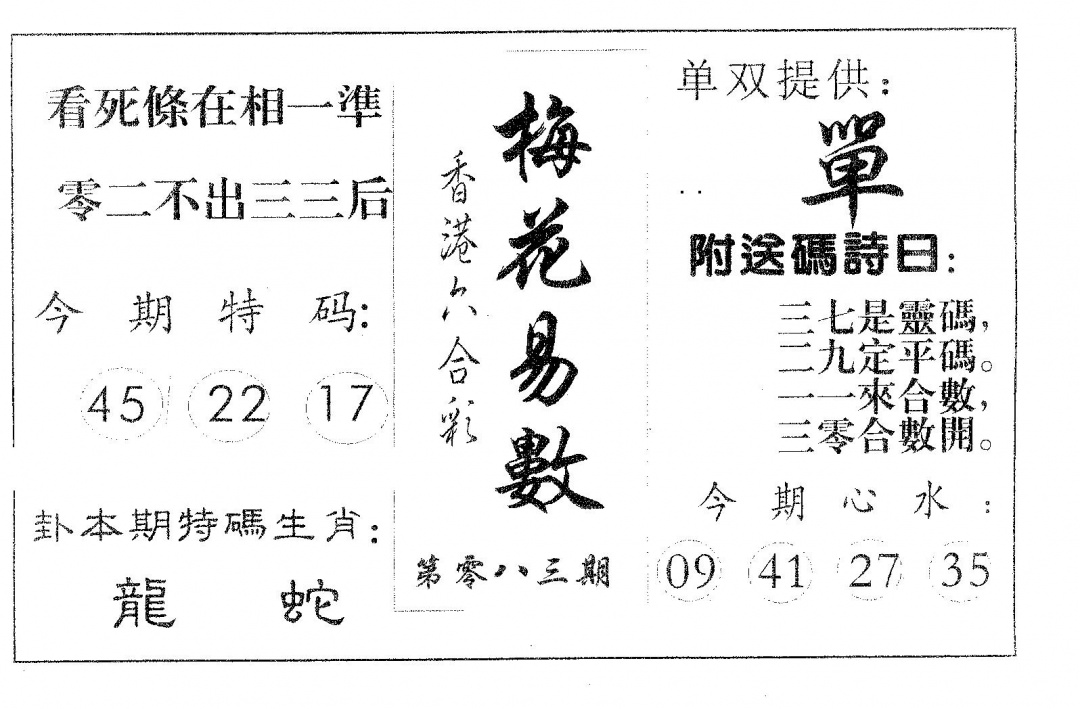 看死條在相一準
零二不出三三后
今期特码:
45 22 17
卦本期特碼生肖:
龍 蛇
梅花易數
香港六合彩
第零八三期
单双提供:
單
附送碼詩曰:
三七是靈碼,
二九定平碼。
一一來合數,
三零合數開。
今期心水:
09 41 27 35